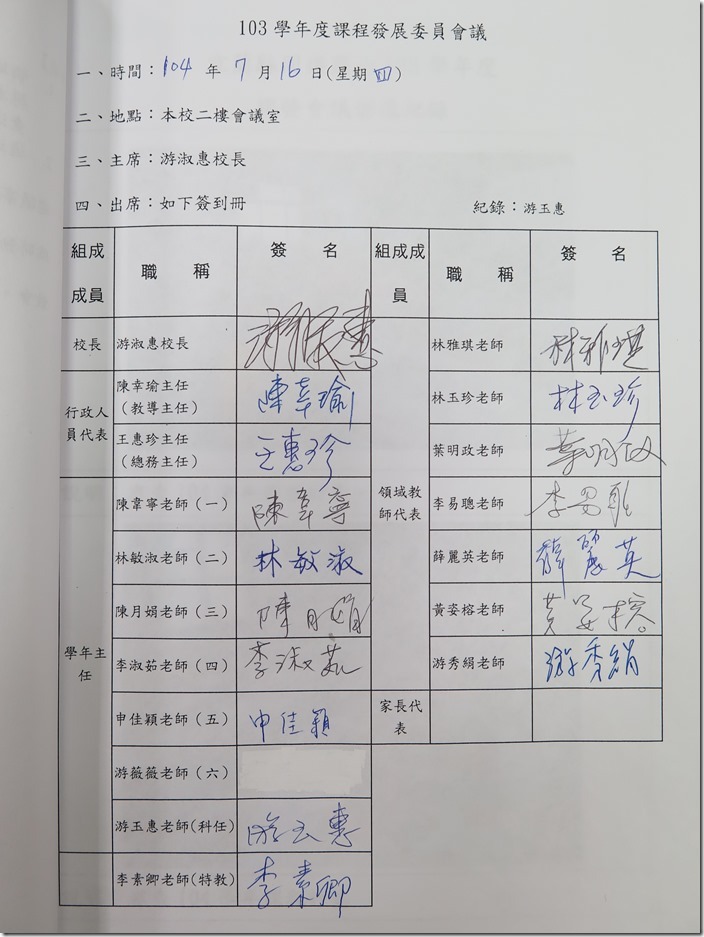 103 學年度課程發展委員會議
一、時間：104 年 7 月 16 日(星期 四)
二、地點：本校二樓會議室
三、主席：游淑惠校長
四、出席：如下簽到冊 紀錄：游玉惠
組成成員 職 稱 簽 名 組成成員 職 稱 簽 名
校長 游淑惠校長 游淑惠
行政人員代表
陳幸瑜主任
（教導主任） 陳幸瑜
王惠珍主任
（總務主任） 王惠珍
學年主任
陳韋寧老師（一） 陳韋寧
林敏淑老師（二） 林敏淑
陳月娟老師（三） 陳月娟
李淑茹老師（四） 李淑茹
申佳穎老師（五） 申佳穎
游薇薇老師（六）
游玉惠老師(科任) 游玉惠
李素卿老師(特教) 李素卿
領域教師代表
林雅琪老師 林雅琪
林玉珍老師 林玉珍
葉明政老師 葉明政
李易聰老師 李易聰
薛麗英老師 薛麗英
黃姿榕老師 黃姿榕
游秀絹老師 游秀絹
家長代表